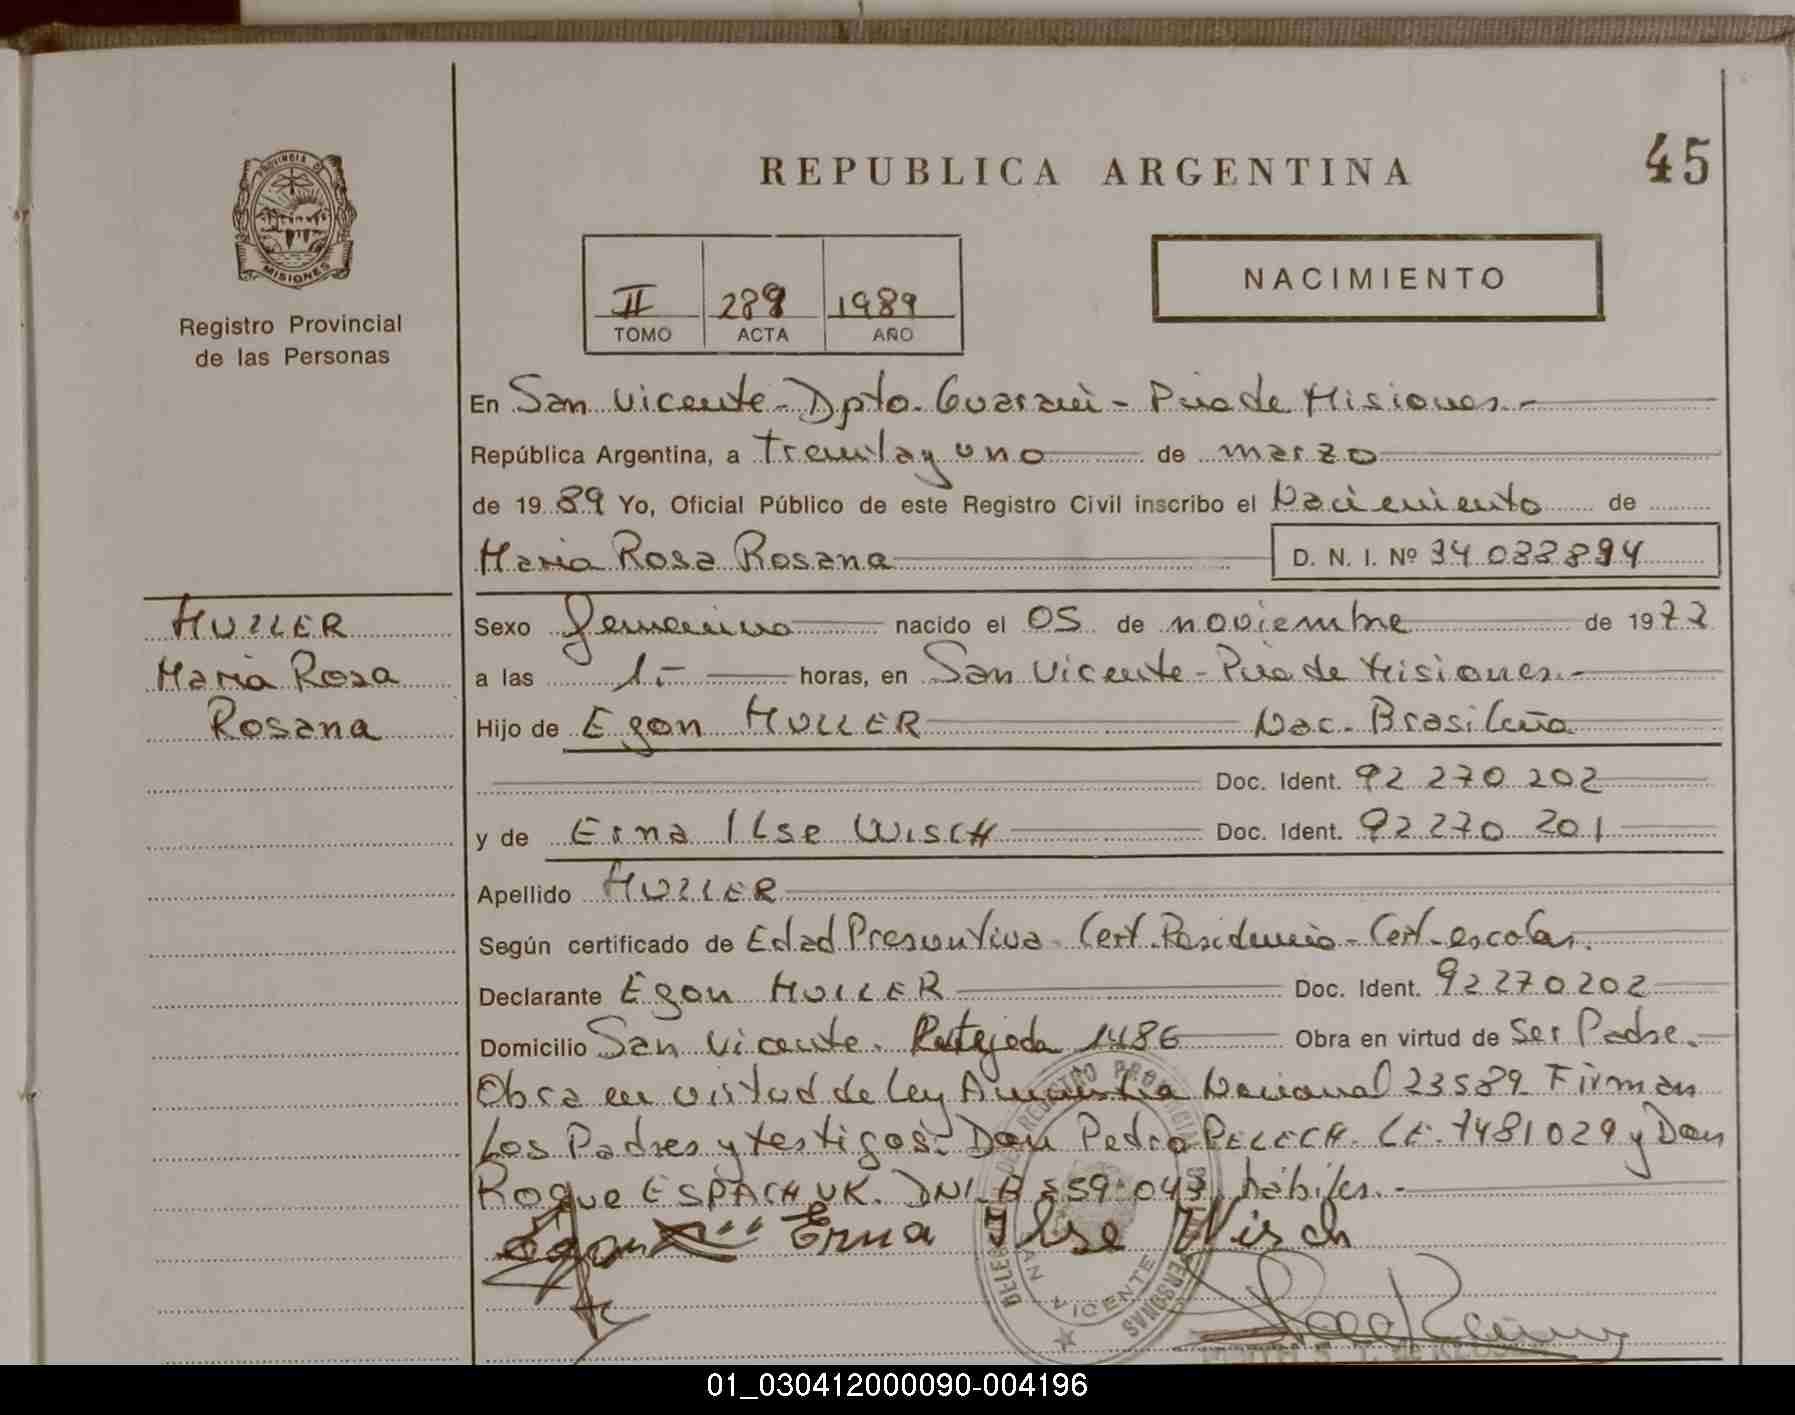 REPUBLICA ARGENTINA
45
PROVINCIA DE
MISIONES
Registro Provincial
de las Personas
II
TOMO
289
ACTA
1989
AÑO
NACIMIENTO
En San Vicente - Dpto. Guaraní - Pcia de Misiones.-
República Argentina, a treintay uno de marzo
de 1989 Yo, Oficial Público de este Registro Civil inscribo el Nacimiento de
Maria Rosa Rosana D. N. I. Nº 34 033 894
HULLER
Maria Rosa
Rosana
Sexo femenino nacido el 05 de noviembre de 1977
a las 1.- horas, en San Vicente - Pcia de Misiones.-
Hijo de Egon HULLER Nac. Brasileña
Doc. Ident. 92 270 202
y de Erna Ilse WISCH Doc. Ident. 92 270 201
Apellido HULLER
Según certificado de Edad Presuntiva - Cert. Residencia - Cert. escolar.
Declarante Egon HULLER Doc. Ident. 92 270 202
Domicilio San Vicente. 1486 Obra en virtud de Ser Padre.
Obra en virtud de Ley Amnistia Nacional 23589 Firman
Los Padres y testigos: Don Pedro PELECH. L.E. 7481029 y Don
Roque ESPACHUK. DNI. 8 559 043, hábiles.-
Egon Erna Ilse Wisch
DEL REGISTRO PROVINCIAL DE LAS PERSONAS
SAN VICENTE
01_030412000090-004196